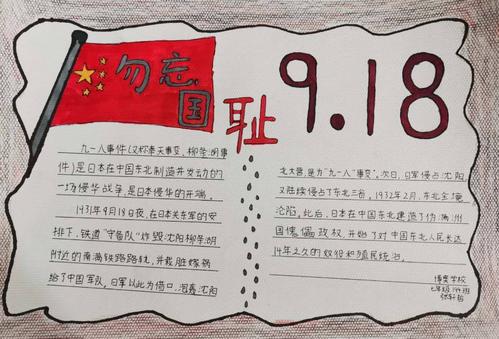 勿忘
国
耻
9.18
九一八事件(又称奉天事变、柳条湖事
件)是日本在中国东北制造并发动的
一场侵华战争,是日本侵华的开端。
1931年9月18日夜,在日本关东军的安
排下,铁道"守备队"炸毁沈阳柳条湖
附近的南满铁路路轨,并栽赃嫁祸
给了中国军队,日军以此为借口,炮轰沈阳
北大营,是为"九一八"事变,次日,日军侵占沈阳,
又陆续侵占了东北三省,1932年2月,东北全境
沦陷,此后,日本在中国东北建造了伪满洲
国傀儡政权,开始了对中国东北人民长达
14年之久的奴役和殖民统治。
博奥学校